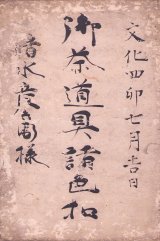 文化四卯七月吉日
御茶道具諸色扣
香水
様